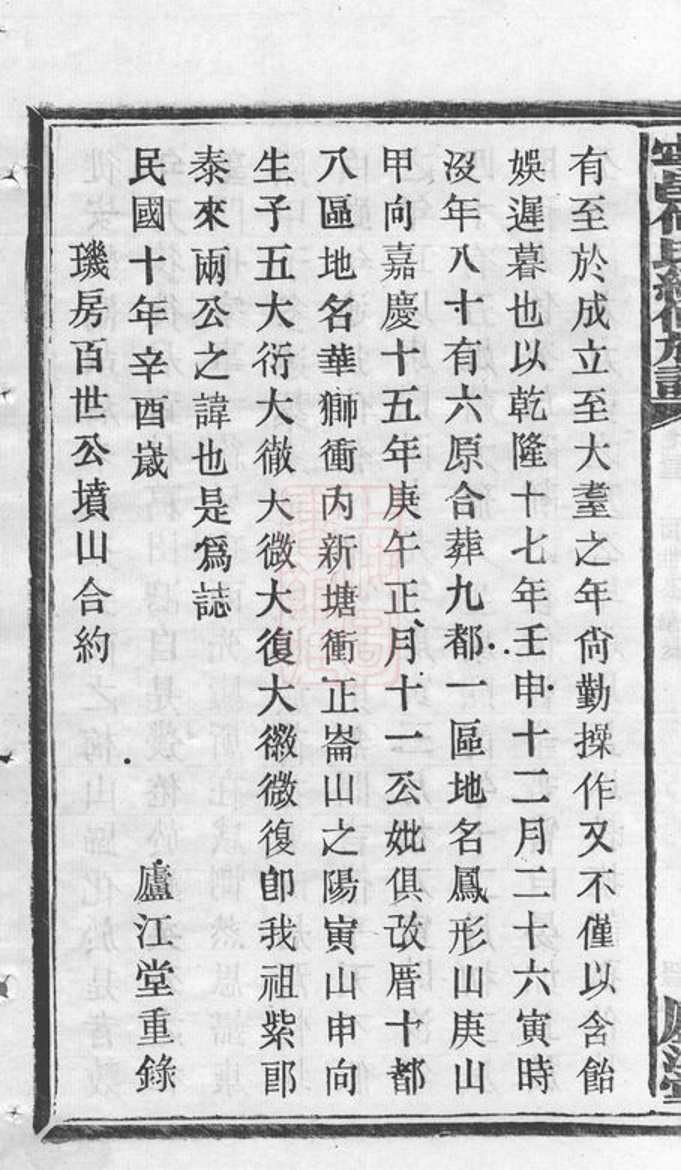 有至於成立至大耋之年尙勤操作又不僅以含飴
娛遲暮也以乾隆十七年壬申十二月二十六寅時
沒年八十有六原合葬九都一區地名鳳形山庚山
甲向嘉慶十五年庚午正月十一公妣俱改厝十都
八區地名華獅衝內新塘衝正崙山之陽寅山申向
生子五大衍大徹大微大復大徽微復卽我祖紫郎
泰來兩公之諱也是爲誌
民國十年辛酉歲 廬江堂重錄
璣房百世公墳山合約